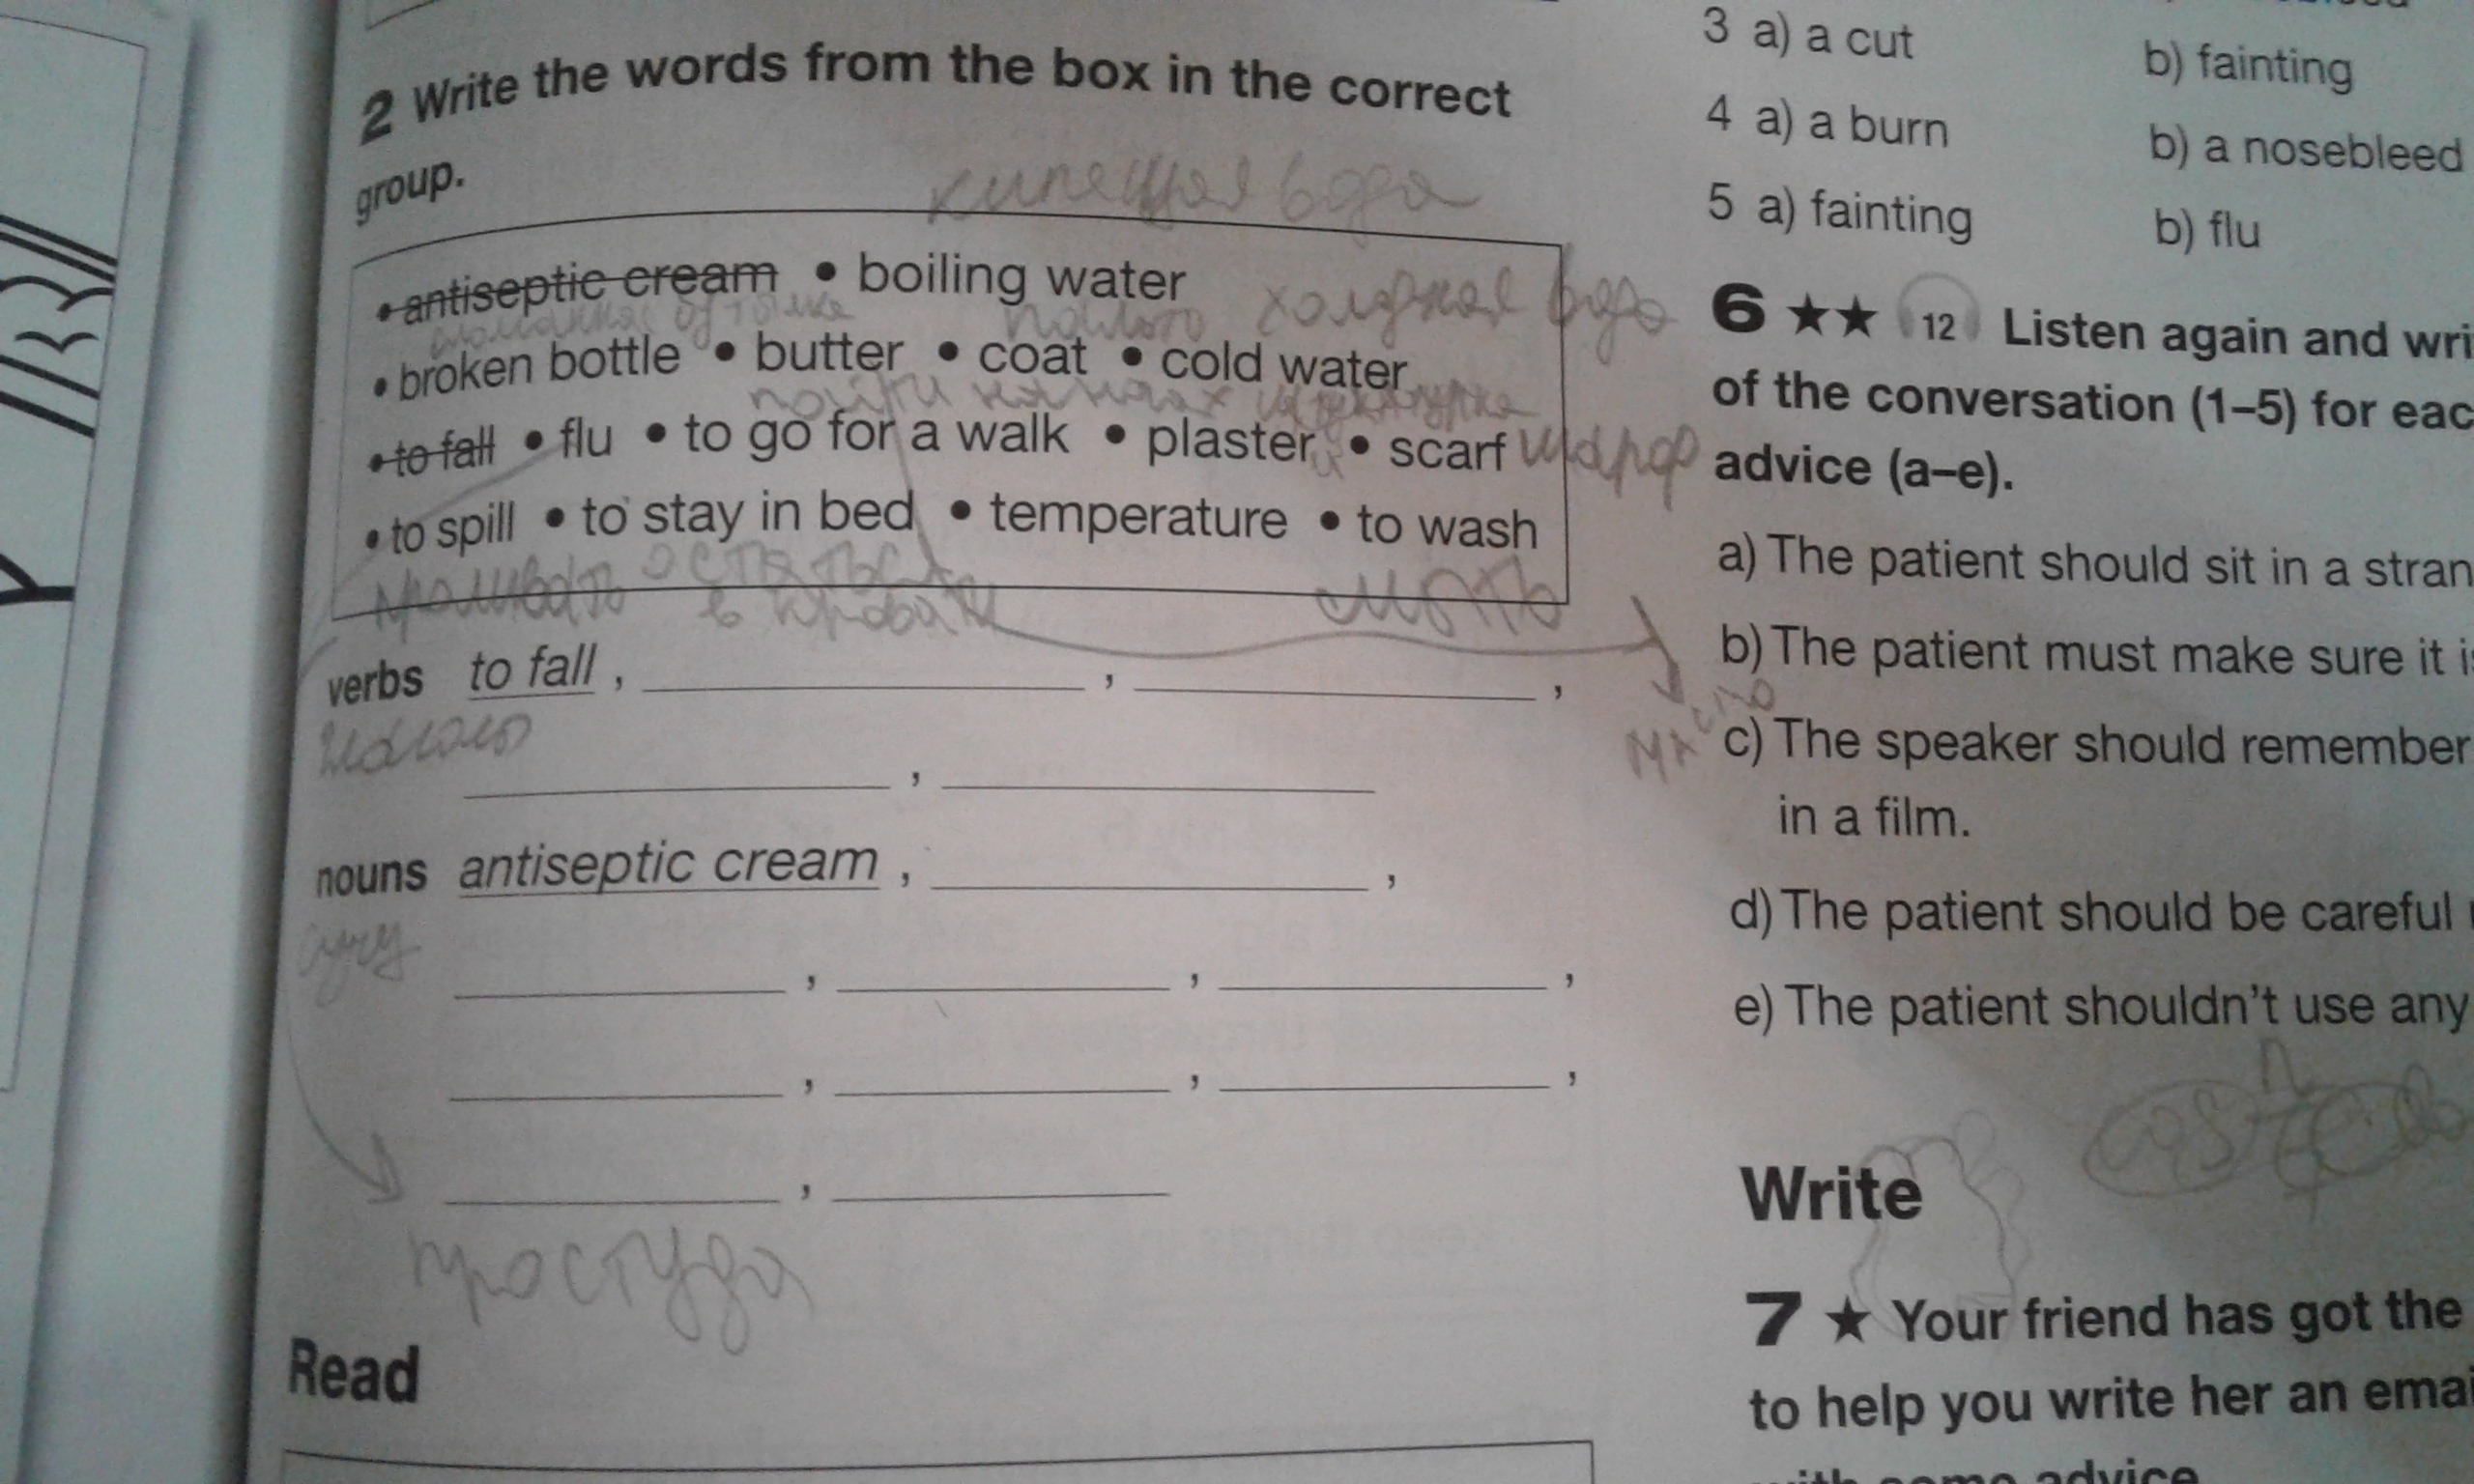 2 Write the words from the box in the correct
group.
кипещая вода
• antiseptic cream • boiling water
холдная вода
• broken bottle • butter • coat • cold water
• to fall • flu • to go for a walk • plaster • scarf шарф
• to spill • to stay in bed • temperature • to wash
остаться
в кровати
мыть
verbs to fall , ,  ,
,
nouns antiseptic cream ,  ,
сущ
,  ,  ,
,  ,  ,
,
простуда
Read
3 a) a cut b) fainting
4 a) a burn b) a nosebleed
5 a) fainting b) flu
6 ★★ 12 Listen again and wri
of the conversation (1–5) for eac
advice (a–e).
a) The patient should sit in a stran
b) The patient must make sure it i
масло
c) The speaker should remember
in a film.
d) The patient should be careful
e) The patient shouldn't use any
Write
7 ★ Your friend has got the
to help you write her an emai
with some advice